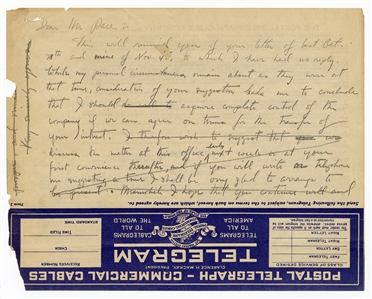 Dear Mr. Pace:-
This will remind you of your letter of last Oct.
28th and mine of Nov. 4th, to which I have had no reply.
While my personal circumstances remain about as they were at
that time, consideration of your suggestion leads me to conclude
that I should acquire complete control of the
company if we can agree on terms for the transfer of
your interest. I therefore wish to suggest that you
discuss the matter at this office early next week or at your
first convenience thereafter, and if you will write or telephone
me suggesting a time I shall be very glad to arrange to
be present. Meanwhile I hope that you continue well and
Send the following Telegram, subject to the terms on back hereof, which are hereby agreed to.
Form 2
POSTAL TELEGRAPH - COMMERCIAL CABLES
CLARENCE H. MACKAY, PRESIDENT
TELEGRAM
TELEGRAMS
TO ALL
AMERICA
CABLEGRAMS
TO ALL
THE WORLD
RECEIVER'S NUMBER
CHECK
TIME FILED
STANDARD TIME
CLASS OF SERVICE DESIRED
FAST TELEGRAM
DAY LETTER
NIGHT TELEGRAM
NIGHT LETTER